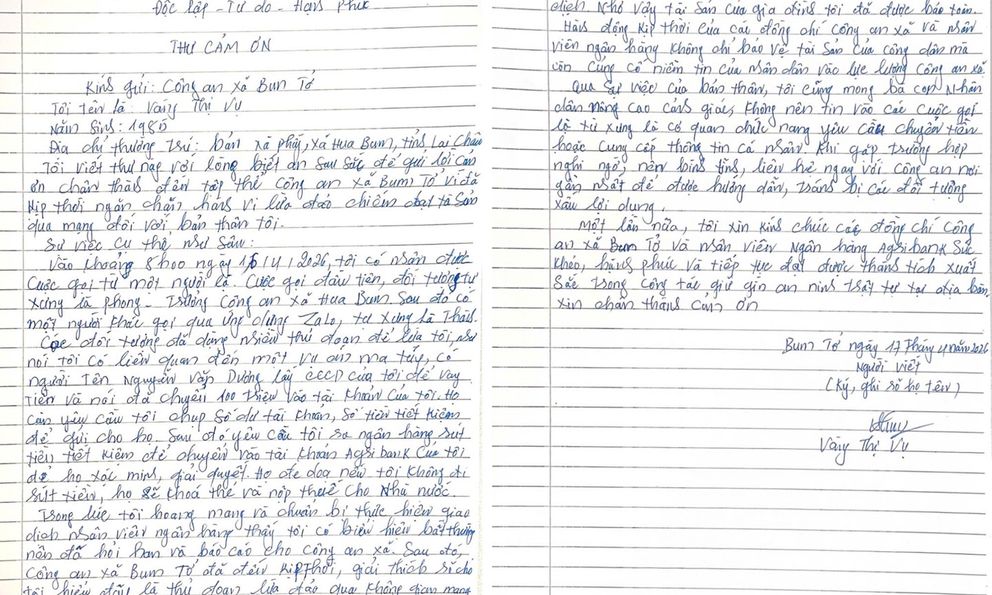 Độc lập - Tự do - Hạnh Phúc
THƯ CẢM ƠN
Kính gửi: Công an xã Bum Tở
Tôi tên là Vàng Thị Vụ
Năm Sinh: 1985
Địa chỉ thường trú: bản Pa phấy, xã Hua Bum, tỉnh Lai Châu
Tôi viết thư này với lòng biết ơn sâu sắc để gửi lời cảm
ơn chân thành đến tập thể Công an xã Bum Tở vì đã
kịp thời ngăn chặn, hành vi lừa đảo chiếm đoạt tài sản
qua mạng đối với bản thân tôi.
Sự việc cụ thể như sau:
Vào khoảng 8h00 ngày 16/4/2026, tôi có nhận được
Cuộc gọi từ một người lạ. Cuộc gọi đầu tiên, đối tượng tự
xưng là Phong - Trưởng Công an xã Hua Bum. Sau đó có
một người khác gọi qua ứng dụng Zalo, tự xưng là Thành.
Các đối tượng đã dùng nhiều thủ đoạn để lừa tôi, như
nói tôi có liên quan đến một vụ án ma túy, có
người tên Nguyễn Văn Dương lấy CCCD của tôi để vay
tiền và nói đã chuyển 100 triệu vào tài khoản của tôi. Họ
còn yêu cầu tôi chụp số dư tài khoản, số tiền tiết kiệm
để gửi cho họ. Sau đó yêu cầu tôi ra ngân hàng rút
tiền tiết kiệm để chuyển vào tài khoản Agribank của tôi
để họ xác minh, giải quyết. Họ đe dọa nếu tôi không đi
rút tiền, họ sẽ khoá thẻ và nộp thuế cho Nhà nước.
Trong lúc tôi hoang mang và chuẩn bị thực hiện giao
dịch nhân viên ngân hàng thấy tôi có biểu hiện bất thường
nên đã hỏi han và báo cáo cho công an xã. Sau đó,
Công an xã Bum Tở đã đến kịp thời, giải thích rõ cho
tôi hiểu đây là thủ đoạn lừa đảo qua không gian mạng
dịch. Nhờ vậy tài sản của gia đình tôi đã được bảo toàn.
Hành động kịp thời của các đồng chí công an xã và nhân
viên ngân hàng không chỉ bảo vệ tài sản của công dân mà
còn củng cố niềm tin của nhân dân vào lực lượng công an xã.
Qua sự việc của bản thân, tôi cũng mong bà con Nhân
dân nâng cao cảnh giác, không nên tin vào các cuộc gọi
lạ tự xưng là cơ quan chức năng yêu cầu chuyển tiền
hoặc cung cấp thông tin cá nhân. Khi gặp trường hợp
nghi ngờ, nên bình tĩnh, liên hệ ngay với Công an nơi
gần nhất để được hướng dẫn, tránh bị các đối tượng
xấu lợi dụng.
Một lần nữa, tôi xin kính chúc các đồng chí Công
an xã Bum Tở và nhân viên Ngân hàng Agribank sức
khỏe, hạnh phúc và tiếp tục đạt được thành tích xuất
sắc trong công tác giữ gìn an ninh trật tự tại địa bàn.
Xin chân thành cảm ơn
Bum Tở ngày 17 tháng 4 năm 2026
Người viết
(Ký, ghi rõ họ tên)
Vàng Thị Vụ